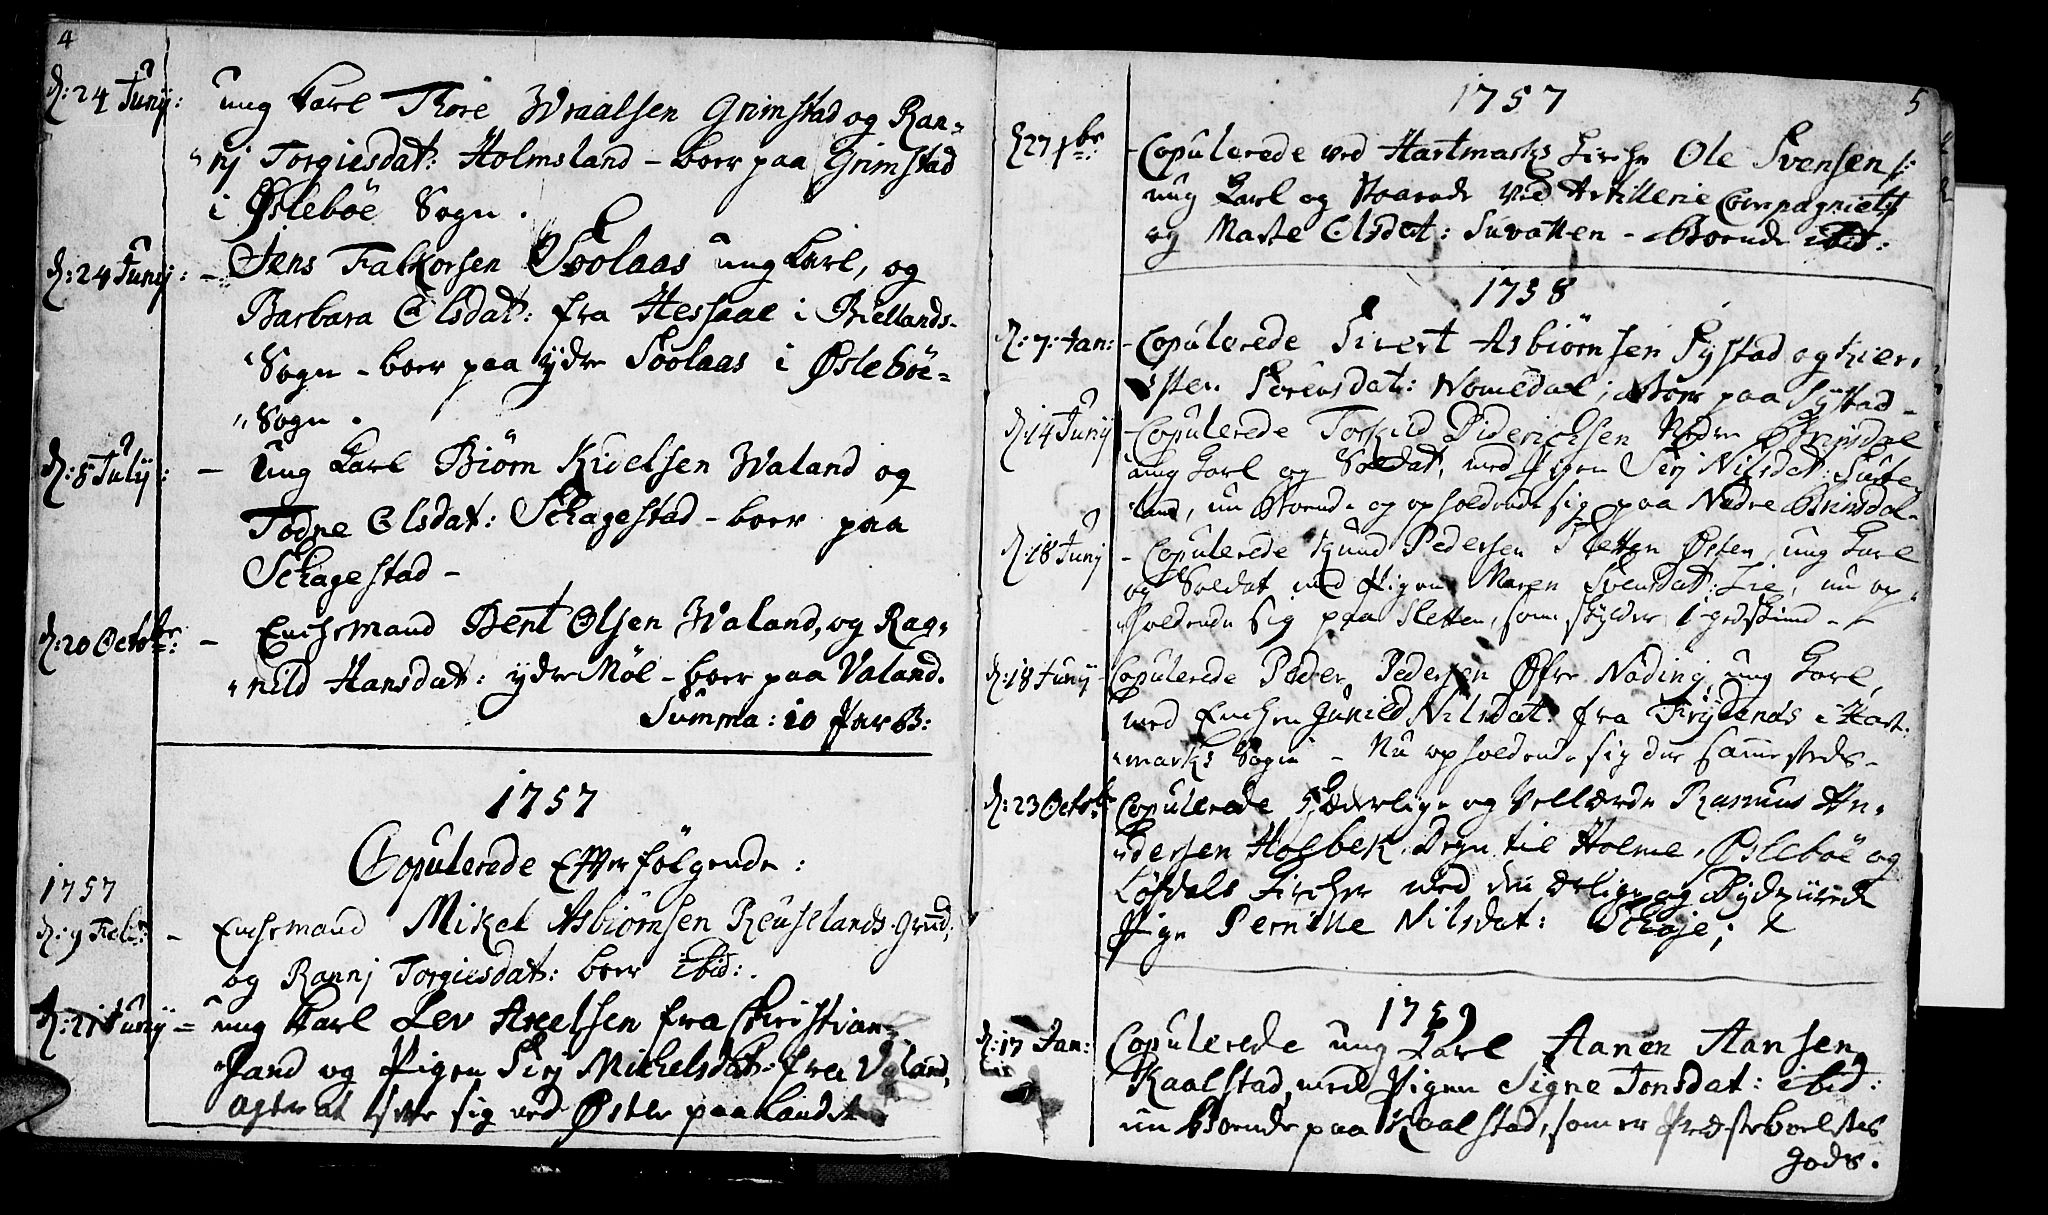 4
d: 24 Junij: ung Karl Thore Wraalsen Grimstad og Ran=
nj Torgiesdat: Holmsland - boer paa Grimstad
i Øslebøe Sogn.
d: 24 Junij: - Jens Falkorsen Soolaas ung Karl, og
Barbara Olsdat: fra Hessaae i Biellands-
Sogn - boer paa ydre Soolaas i Øslebøe=
Sogn.
d: 8 Julij: - Ung Karl Biørn Kidelsen Waland og
Todne Olsdat: Schagestad - boer paa
Schagestad -
d: 20 Octobr: - Enchemand Bent Olsen Waland, og Rag=
nild Hansdat: ydre Møl - boer paa Valand.
Summa: 10 Par B:
1757
Copulerede Efterfølgende:
1757
d: 9 Febr: - Enchemand Mikel Asbiørnsen Reuselands Grud,
og Rannj Torgiesdat: boer ibid:
d: 21 Junij = ung Karl Lev Axelsen fra Christian=
sand og Pigen Sirj Michelsdat: fra Valand,
agter at sette sig ved Øster paa Landet
5
1757
d 27 br: - Copulerede ved Hartmarks Kirche Ole Svensen
ung Karl og ved Artillerie Compagniet
og Marte Olsdat: Suvatten - Boende ibid:
1758
d: 7: Jan: - Copulerede Sivert Asbiørnsen Systad og Kier=
sten Sørensdat: Nomedal; Boer paa Systad -
d: 14 Junij - Copulerede Torkild Diderichsen Nedre Brinsdal
ung Karl og Soldat, med Pigen Sirj Nilsdat:
land, nu Boende og opholdende sig paa Nedre Brinsdal -
d: 18 Junij - Copulerede Knud Pedersen Sletten Østen, ung Karl
og Soldat med Pigen Maren Svensdat: Lie, nu op=
holdende sig paa Sletten, som skylder 1 gedskind -
d: 18 Junij - Copulerede Peder Pedersen Øfre Nøding, ung Karl,
med Enchen Gunild Nilsdat: fra Frydends i Hart=
marks Sogn - Nu opholdende sig der sammesteds -
d: 23 Octobr Copulerede Hæderlige og Vellærde Rasmus An=
dersen Holbek, Degn til Holme, Øslebøe og
Løfdals Kircher med den ærlige og Dydziirede
Pige Pernille Nilsdat: Schøje;
1759
d: 17 Jan: Copulerede ung Karl Aanen Aansen
Kaalstad, med Pigen Signe Jonsdat: ibid:
nu Boende paa Kaalstad, som er Præsteboelets
gods.